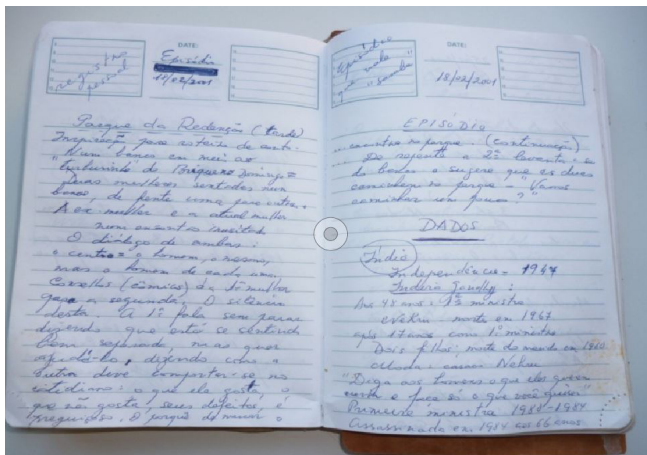 registro
pessoal
DATE:
Episódio
18/02/2001
Parque da Redenção (tarde)
Inspiração para roteiro de
Num banco em meio ao
do Brique Domingo =
Duas mulheres sentadas num
banco, de frente uma para outra.
A ex mulher e a atual mulher
num encontro inusitado
O diálogo de ambas:
o centro = o homem, o mesmo,
mas o homem de cada uma
Conselhos (cômicos) da 1ª mulher
para a segunda. O silêncio
desta. A 1ª fala sem parar
dizendo que está se sentindo
bem separada, mas quer
ajudá-la, dizendo como a
outra deve comportar-se no
cotidiano: o que ele gosta, o
que não gosta, seus defeitos, é
preguiçoso. O parque de
Episódio
que
"samba"
DATE:
18/02/2001
EPISÓDIO
encontro no parque. (continuação)
De repente a 2ª levanta-se
do banco e sugere que as duas
caminhem no parque - "Vamos
caminhar um pouco?"
DADOS
Índia
Independência = 1947
Indira Gandhi:
Aos 48 anos: 1ª ministra
Nehru morto em 1967
após 17 anos como 1º ministro
Dois filhos: morte do marido em 1960
"Diga aos homens o que eles querem
e faça só o que você quiser"
Primeira ministra 1980-1984
Assassinada em 1984 aos 66 anos.